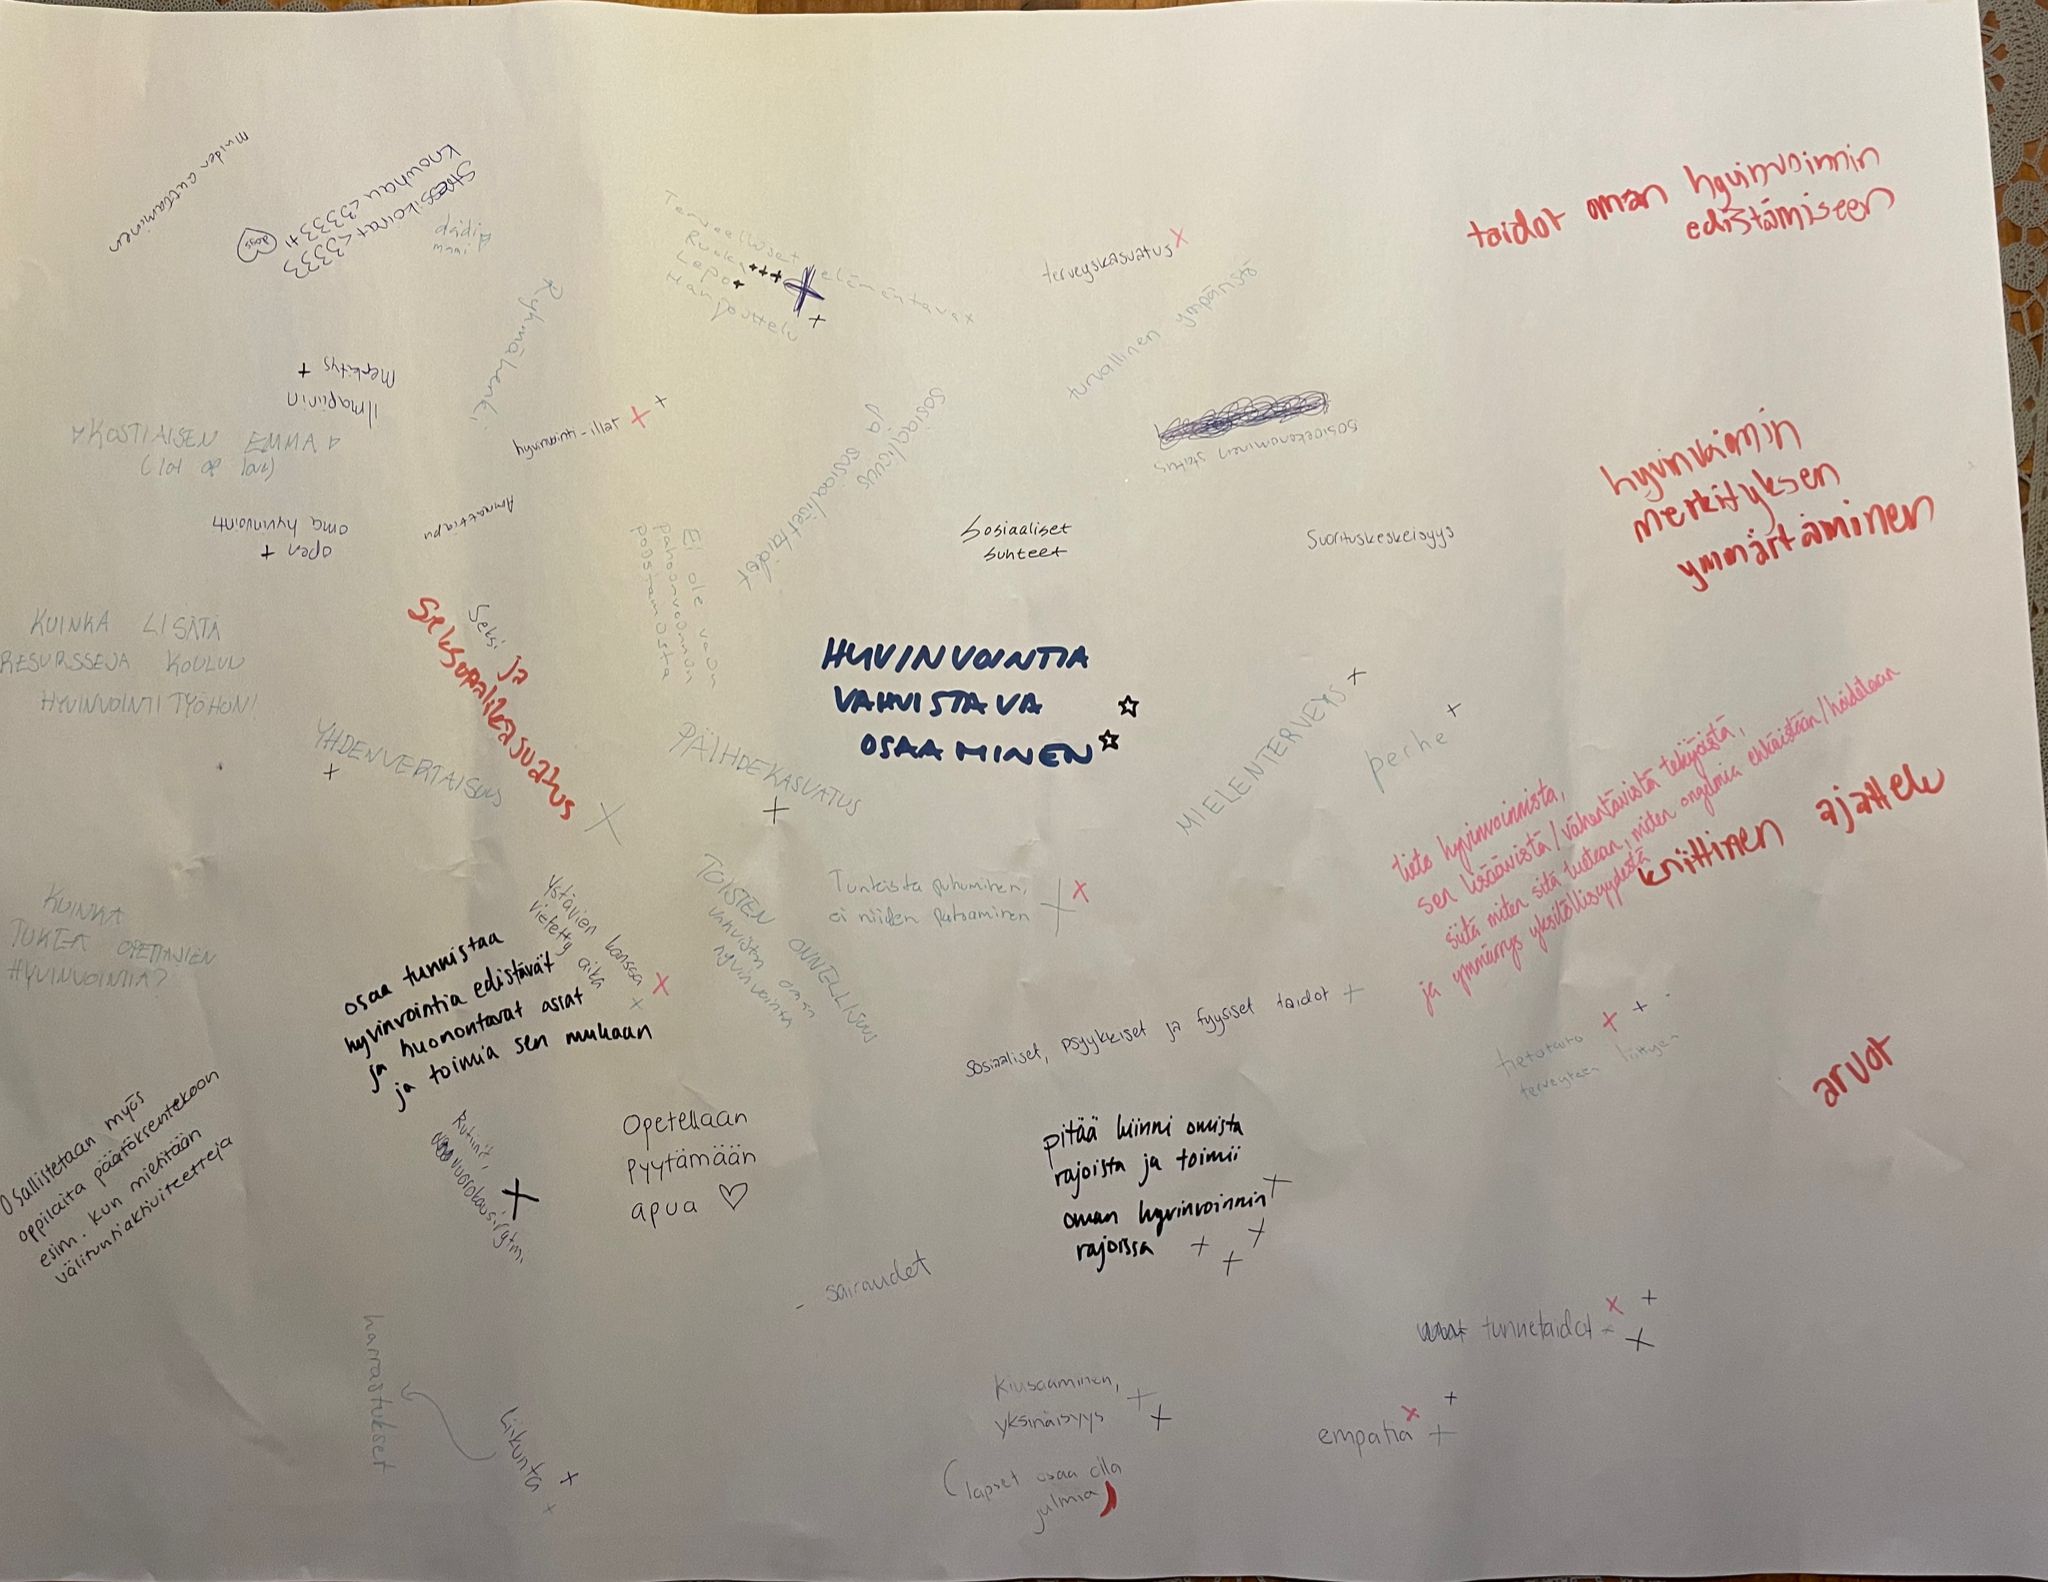 Muiden auttaminen
Stressikoirat <3333
knowhau <3333 ++
dogs
Terveelliset elämäntavat
Ruoka +++
Lepo +
Harjoittelu
+
terveyskasvatus x
turvallinen ympäristö
taidot oman hyvinvoinnin
edistämiseen
Ryhmähenki
ilmapiirin
merkitys +
KOSTIAISEN EMMA
(lot of love)
hyvinvointi-illat x +
Sosiaalisuus
ja sosiaaliset taidot
+
sosioekonominen status
hyvinvoinnin
merkityksen
ymmärtäminen
open +
oma hyvinvointi
Ammattiapu
Ei ole vaan
pahoinvoinnin
poistamista
Sosiaaliset
suhteet
Suorituskeskeisyys
KUINKA LISÄTÄ
RESURSSEJA KOULUU
HYVINVOINTITYÖHÖN!
Seksi ja
seksuaalikasvatus
X
HYVINVOINTIA
VAHVISTAVA
OSAAMINEN
YHDENVERTAISUUS
+
PÄIHDEKASVATUS
+
MIELENTERVEYS +
perhe +
tieto hyvinvoinnista,
sen lisäävistä/vähentävistä tekijöistä,
siitä miten sitä tuetaan, miten ongelmia ehkäistään/hoidetaan
ja ymmärrys yksilöllisyydestä
kriittinen ajattelu
KUINKA
TUKEA OPETTAJIEN
HYVINVOINTIA?
Ystävien kanssa
vietetty aika
+ x
TOISTEN ONNELLISUUS
vahvistaa oman
hyvinvointia
Tunteista puhuminen,
ei niiden patoaminen + x
osaa tunnistaa
hyvinvointia edistävät
ja huonontavat asiat
ja toimia sen mukaan
sosiaaliset, psyykkiset ja fyysiset taidot +
tietotaito x +
terveyteen liittyen
arvot
Osallistetaan myös
oppilaita päätöksentekoon
esim. kun mietitään
välituntiaktiviteetteja
Rutiinit,
vuorokausirytmi
+
Opetellaan
pyytämään
apua ♡
pitää kiinni omista
rajoista ja toimii
oman hyvinvoinnin +
rajoissa + + +
- sairaudet
harrastukset
Liikunta +
+
tunnetaidot - x +
+
Kiusaaminen, +
yksinäisyys +
(lapset osaa olla
julmia)
empatia x +
+